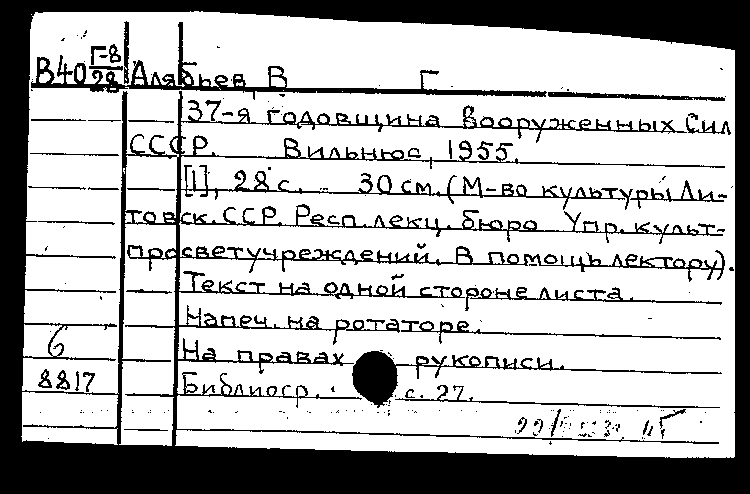 В40 Г-8/28 Алябьев, В Г
37-я годовщина Вооруженных Сил
СССР. Вильнюс, 1955.
[1], 28 с. 30 см. (М-во культуры Ли-
товск. ССР. Респ. лекц. бюро Упр. культ-
просветучреждений. В помощь лектору).
Текст на одной стороне листа.
Напеч. на ротаторе.
6 На правах рукописи.
8817 Библиогр. с. 27.